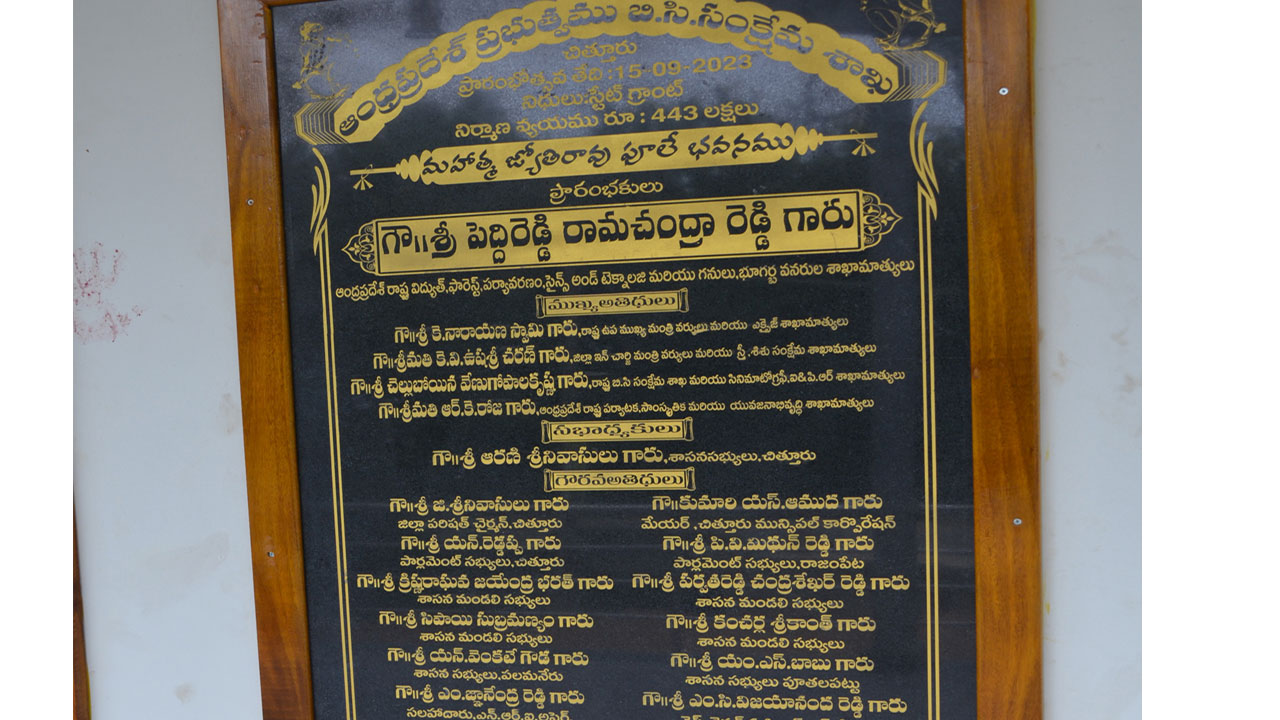 ఆంధ్రప్రదేశ్ ప్రభుత్వము బి.సి.సంక్షేమ శాఖ
చిత్తూరు
ప్రారంభోత్సవ తేది :15-09-2023
నిధులు:స్టేట్ గ్రాంట్
నిర్మాణ వ్యయము రూ : 443 లక్షలు
మహాత్మ జ్యోతిరావు పూలే భవనము
ప్రారంభకులు
గౌ॥శ్రీ పెద్దిరెడ్డి రామచంద్రా రెడ్డి గారు
ఆంధ్రప్రదేశ్ రాష్ట్ర విద్యుత్,ఫారెస్ట్,పర్యావరణం,సైన్స్ అండ్ టెక్నాలజి మరియు గనులు,భూగర్భ వనరుల శాఖామాత్యులు
ముఖ్యఅతిధులు
గౌ॥శ్రీ కె.నారాయణ స్వామి గారు,రాష్ట్ర ఉప ముఖ్య మంత్రి వర్యులు మరియు ఎక్సైజ్ శాఖామాత్యులు
గౌ॥శ్రీమతి కె.వి.ఉషశ్రీ చరణ్ గారు,జిల్లా ఇన్ చార్జి మంత్రి వర్యులు మరియు స్త్రీ .శిశు సంక్షేమ శాఖామాత్యులు
గౌ॥శ్రీ చెల్లుబోయిన వేణుగోపాలకృష్ణ గారు,రాష్ట్ర బి.సి సంక్షేమ శాఖ మరియు సినిమాటోగ్రఫీ,ఐడి.పి.ఆర్ శాఖామాత్యులు
గౌ॥శ్రీమతి ఆర్.కె.రోజ గారు,ఆంధ్రప్రదేశ్ రాష్ట్ర పర్యాటక,సాంస్కృతిక మరియు యువజనాభివృద్ధి శాఖామాత్యులు
సభాధ్యక్షులు
గౌ॥శ్రీ ఆరణి శ్రీనివాసులు గారు,శాసనసభ్యులు,చిత్తూరు
గౌరవఅతిధులు
గౌ॥శ్రీ జి.శ్రీనివాసులు గారు
జిల్లా పరిషత్ చైర్మన్,చిత్తూరు
గౌ॥కుమారి యస్.ఆముద గారు
మేయర్ ,చిత్తూరు మున్సిపల్ కార్పొరేషన్
గౌ॥శ్రీ యన్.రెడ్డప్ప గారు
పార్లమెంట్ సభ్యులు,చిత్తూరు
గౌ॥శ్రీ పి.వి.మిధున్ రెడ్డి గారు
పార్లమెంట్ సభ్యులు,రాజంపేట
గౌ॥శ్రీ క్రిష్ణరాఘవ జయేంద్ర భరత్ గారు
శాసన మండలి సభ్యులు
గౌ॥శ్రీ పర్వతరెడ్డి చంద్రశేఖర్ రెడ్డి గారు
శాసన మండలి సభ్యులు
గౌ॥శ్రీ సిపాయి సుబ్రమణ్యం గారు
శాసన మండలి సభ్యులు
గౌ॥శ్రీ కంచర్ల శ్రీకాంత్ గారు
శాసన మండలి సభ్యులు
గౌ॥శ్రీ యన్.వెంకటే గౌడ గారు
శాసన సభ్యులు,పలమనేరు
గౌ॥శ్రీ యం.ఎస్.బాబు గారు
శాసన సభ్యులు పూతలపట్టు
గౌ॥శ్రీ ఎం.జ్ఞానేంద్ర రెడ్డి గారు
గౌ॥శ్రీ ఎం.సి.విజయానంద రెడ్డి గారు